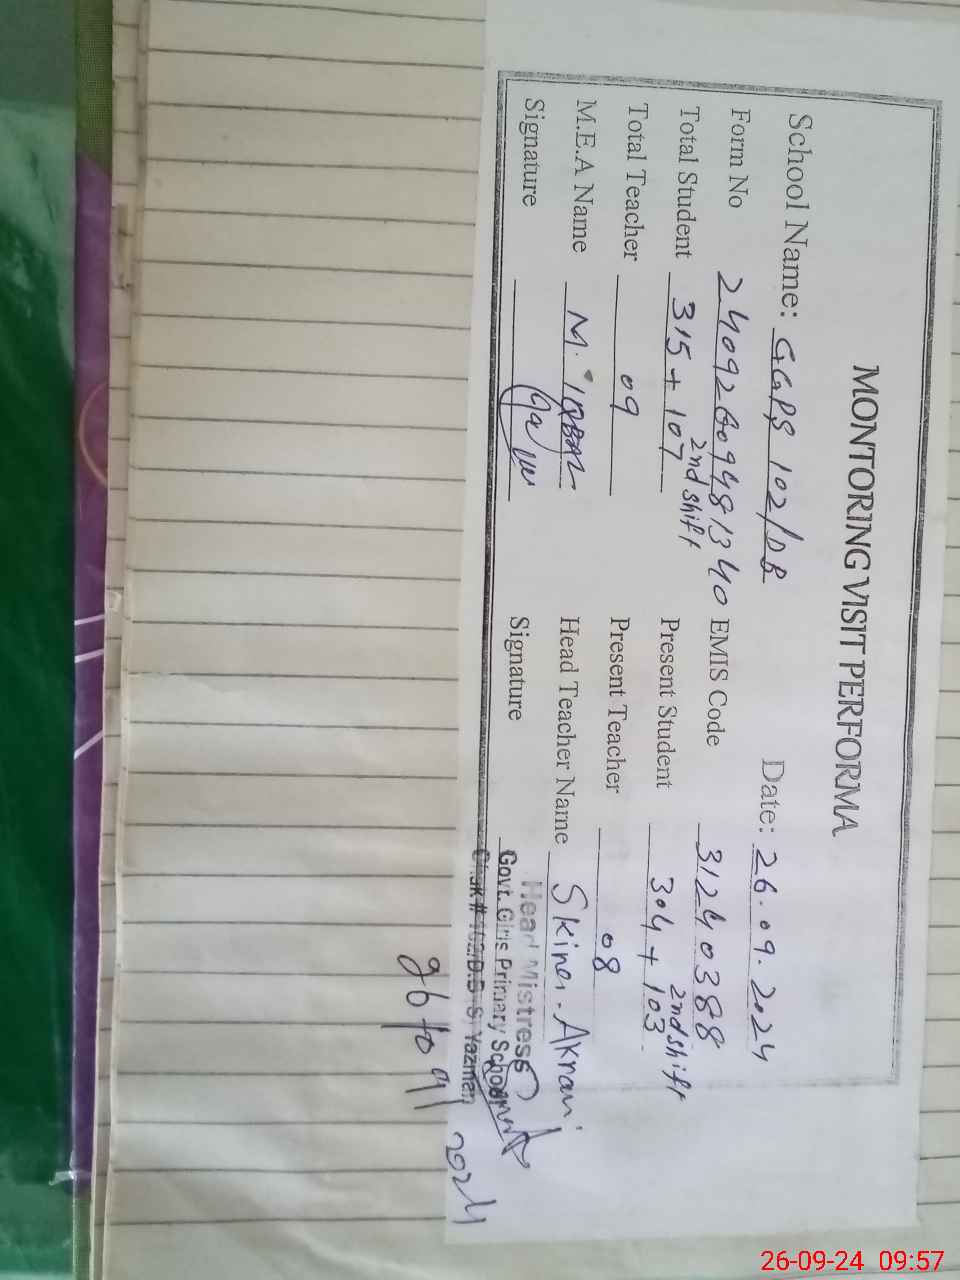 MONTORING VISIT PERFORMA
School Name: GGPS 102/DB Date: 26.09.2024
Form No 24092609481340 EMIS Code 31240388
Total Student 315 + 107 2nd shift Present Student 304 + 103 2nd shift
Total Teacher 09 Present Teacher 08
M.E.A Name M. IQBAL Head Teacher Name
Signature Signature
Head Mistress
Govt. Girls Primary School
Chak # 102/D.B Yazman
2024
26-09-24 09:57